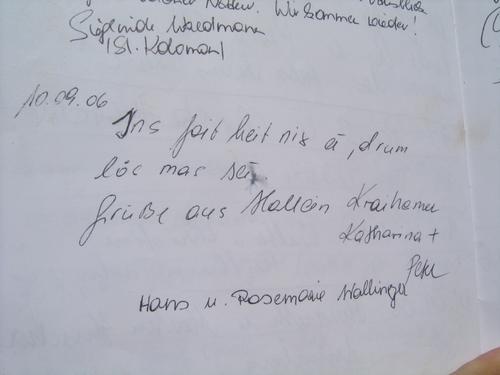 Wir kommen wieder!
Sieglinde Waldmann
(St. Koloman)
10.09.06
Ins foit heit nix ei, drum
lóс mas sei.
Grüße aus Hallein Kraihamer
Katharina +
Peter
Hans u. Rosemarie Wallinger